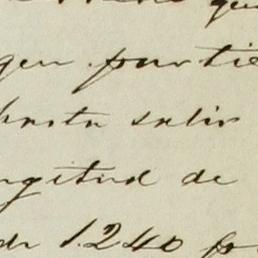 gen partie
hasta salir
ngitud de
de 1.240 p